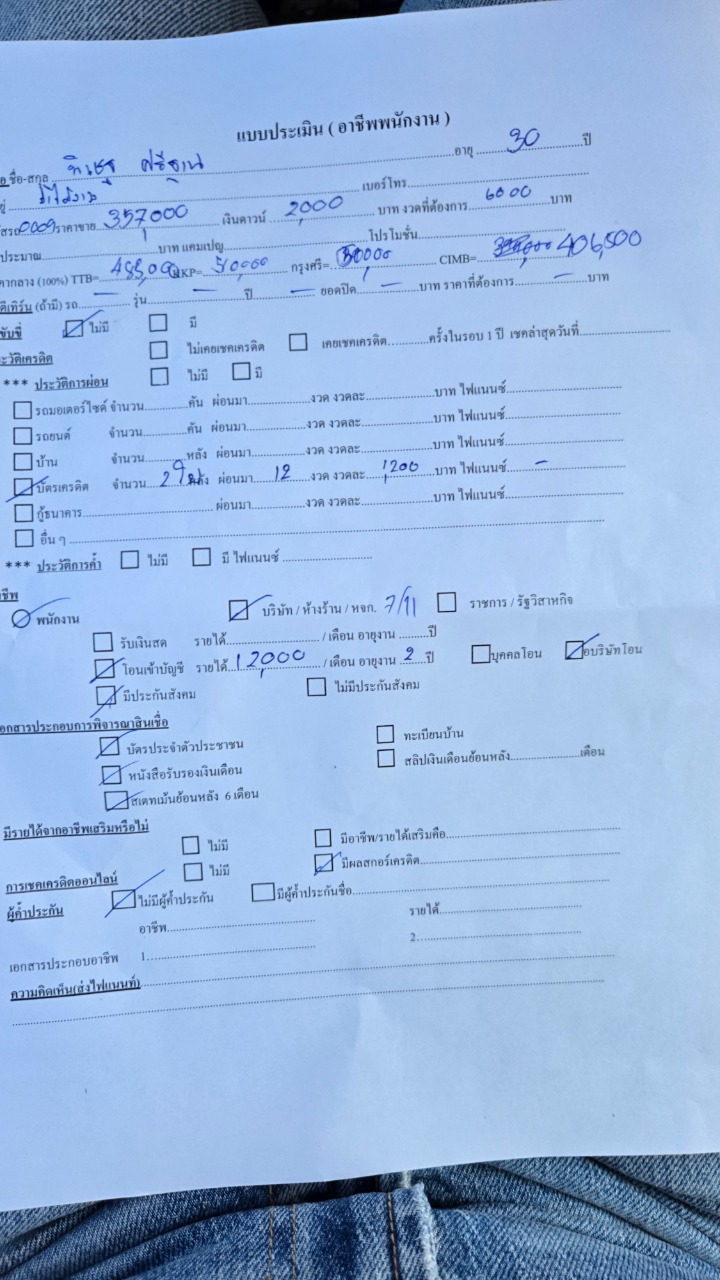 แบบประเมิน ( อาชีพพนักงาน )
ชื่อ-สกุล ศรีฐาน อายุ 30 ปี
เบอร์โทร
0009 ราคาขาย 357,000 เงินดาวน์ 2,000 บาท งวดที่ต้องการ 6000 บาท
ประมาณ บาท แคมเปญ โปรโมชั่น
คากลาง (100%) TTB= KKP= กรุงศรี= CIMB= 406,500
ดีเทิร์น (ถ้ามี) รถ — รุ่น ปี — ยอดปิด — บาท ราคาที่ต้องการ — บาท
ขับขี่ ไม่มี มี
ะวัติเครดิต ไม่เคยเชคเครดิต เคยเชคเครดิต ครั้งในรอบ 1 ปี เชคล่าสุดวันที่
*** ประวัติการผ่อน ไม่มี มี
รถมอเตอร์ไซค์ จำนวน คัน ผ่อนมา งวด งวดละ บาท ไฟแนนซ์
รถยนต์ จำนวน คัน ผ่อนมา งวด งวดละ บาท ไฟแนนซ์
บ้าน จำนวน หลัง ผ่อนมา งวด งวดละ บาท ไฟแนนซ์
บัตรเครดิต จำนวน 2 ผ่อนมา 12 งวด งวดละ 1,200 บาท ไฟแนนซ์ —
กู้ธนาคาร ผ่อนมา งวด งวดละ บาท ไฟแนนซ์
อื่น ๆ
*** ประวัติการค้ำ ไม่มี มี ไฟแนนซ์
าชีพ
พนักงาน บริษัท / ห้างร้าน / หจก. 7/11 ราชการ / รัฐวิสาหกิจ
รับเงินสด รายได้ / เดือน อายุงาน ปี
โอนเข้าบัญชี รายได้ 12,000 / เดือน อายุงาน 2 ปี บุคคลโอน บริษัทโอน
มีประกันสังคม ไม่มีประกันสังคม
อกสารประกอบการพิจารณาสินเชื่อ
บัตรประจำตัวประชาชน ทะเบียนบ้าน
หนังสือรับรองเงินเดือน สลิปเงินเดือนย้อนหลัง เดือน
สเตทเม้นย้อนหลัง 6 เดือน
มีรายได้จากอาชีพเสริมหรือไม่
ไม่มี มีอาชีพ/รายได้เสริมคือ
การเชคเครดิตออนไลน์ ไม่มี มีผลสกอร์เครดิต
ผู้ค้ำประกัน ไม่มีผู้ค้ำประกัน มีผู้ค้ำประกันชื่อ
อาชีพ รายได้
เอกสารประกอบอาชีพ 1 2
ความคิดเห็น(ส่งไฟแนนท์)